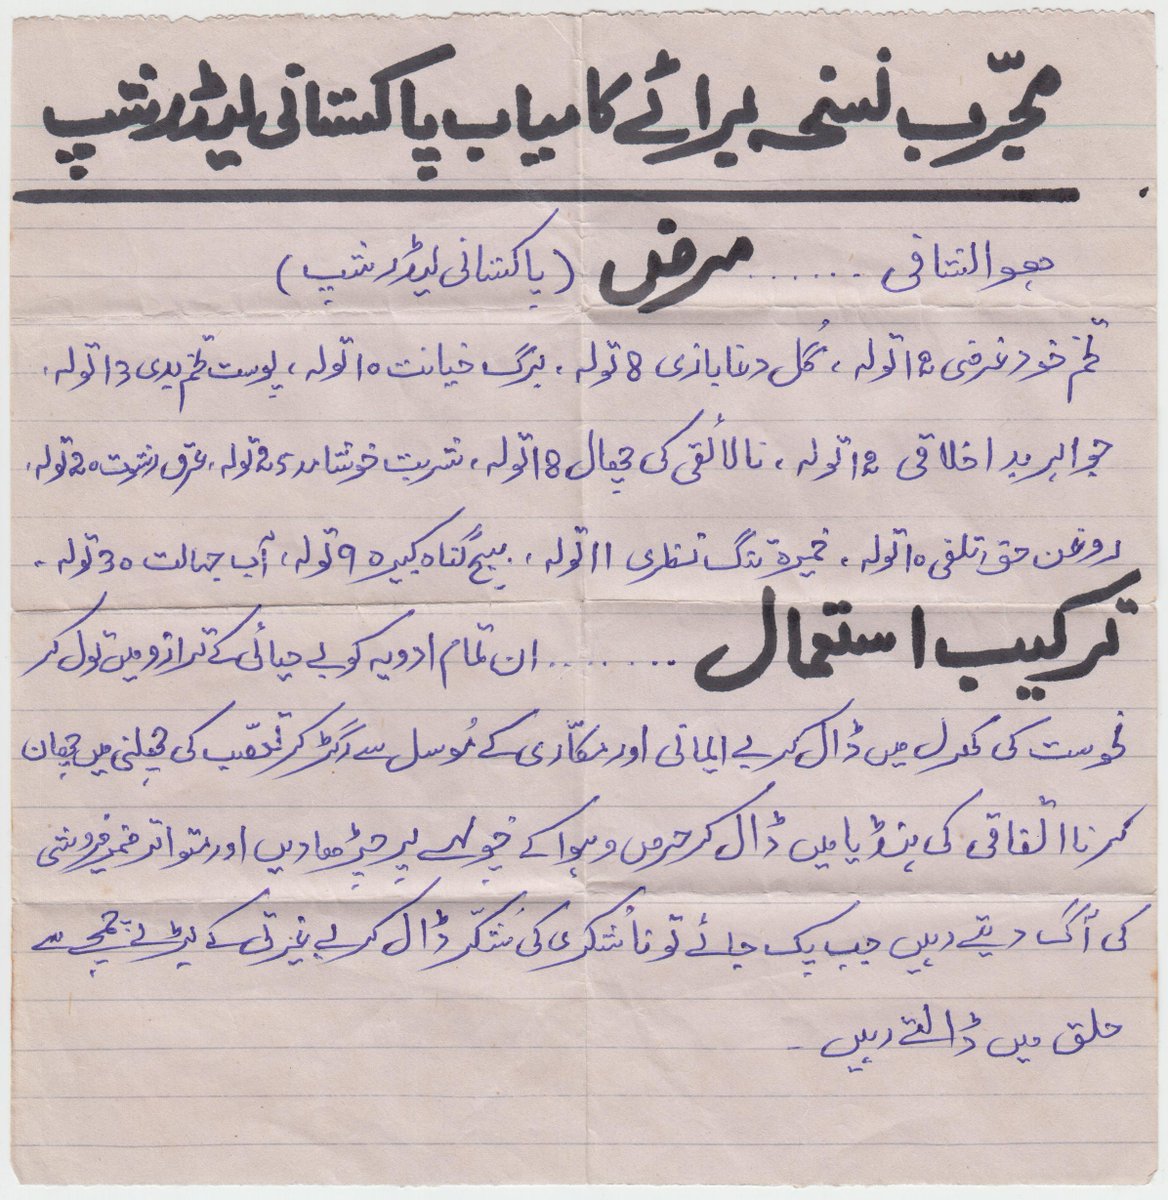 مجرّب نسخہ برائے کامیاب پاکستانی لیڈرشپ
ھوالشافی ....... مرض (پاکستانی لیڈرشپ)
تخم خودغرضی 12 تولہ، گُل دغابازی 8 تولہ، برگ خیانت 10 تولہ، پوست تخم بدی 13 تولہ،
جواہر بد اخلاقی 12 تولہ، نالائقی کی چھال 18 تولہ، شربت خوشامد 25 تولہ، عرق رشوت 20 تولہ،
روغن حق تلفی 10 تولہ، خمیرہ تنگ نظری 11 تولہ، بیج گناہ کبیرہ 9 تولہ، آب جہالت 30 تولہ۔
ترکیب استعمال ........ ان تمام ادویہ کو بے حیائی کے ترازو میں تول کر
نحوست کی کھرل میں ڈال کر بے ایمانی اور مکّاری کے مُوسل سے رگڑ کر تعصّب کی چھلنی میں چھان
کر نااتفاقی کی ہنڈیا میں ڈال کر حرص و ہوا کے چولہے پر چڑھادیں اور متواتر ضمیر فروشی
کی آگ دیتے رہیں جب پک جائے تو ناشُکری کی شکّر ڈال کر بے غیرتی کے بڑے چمچے سے
حلق میں ڈالتے رہیں۔